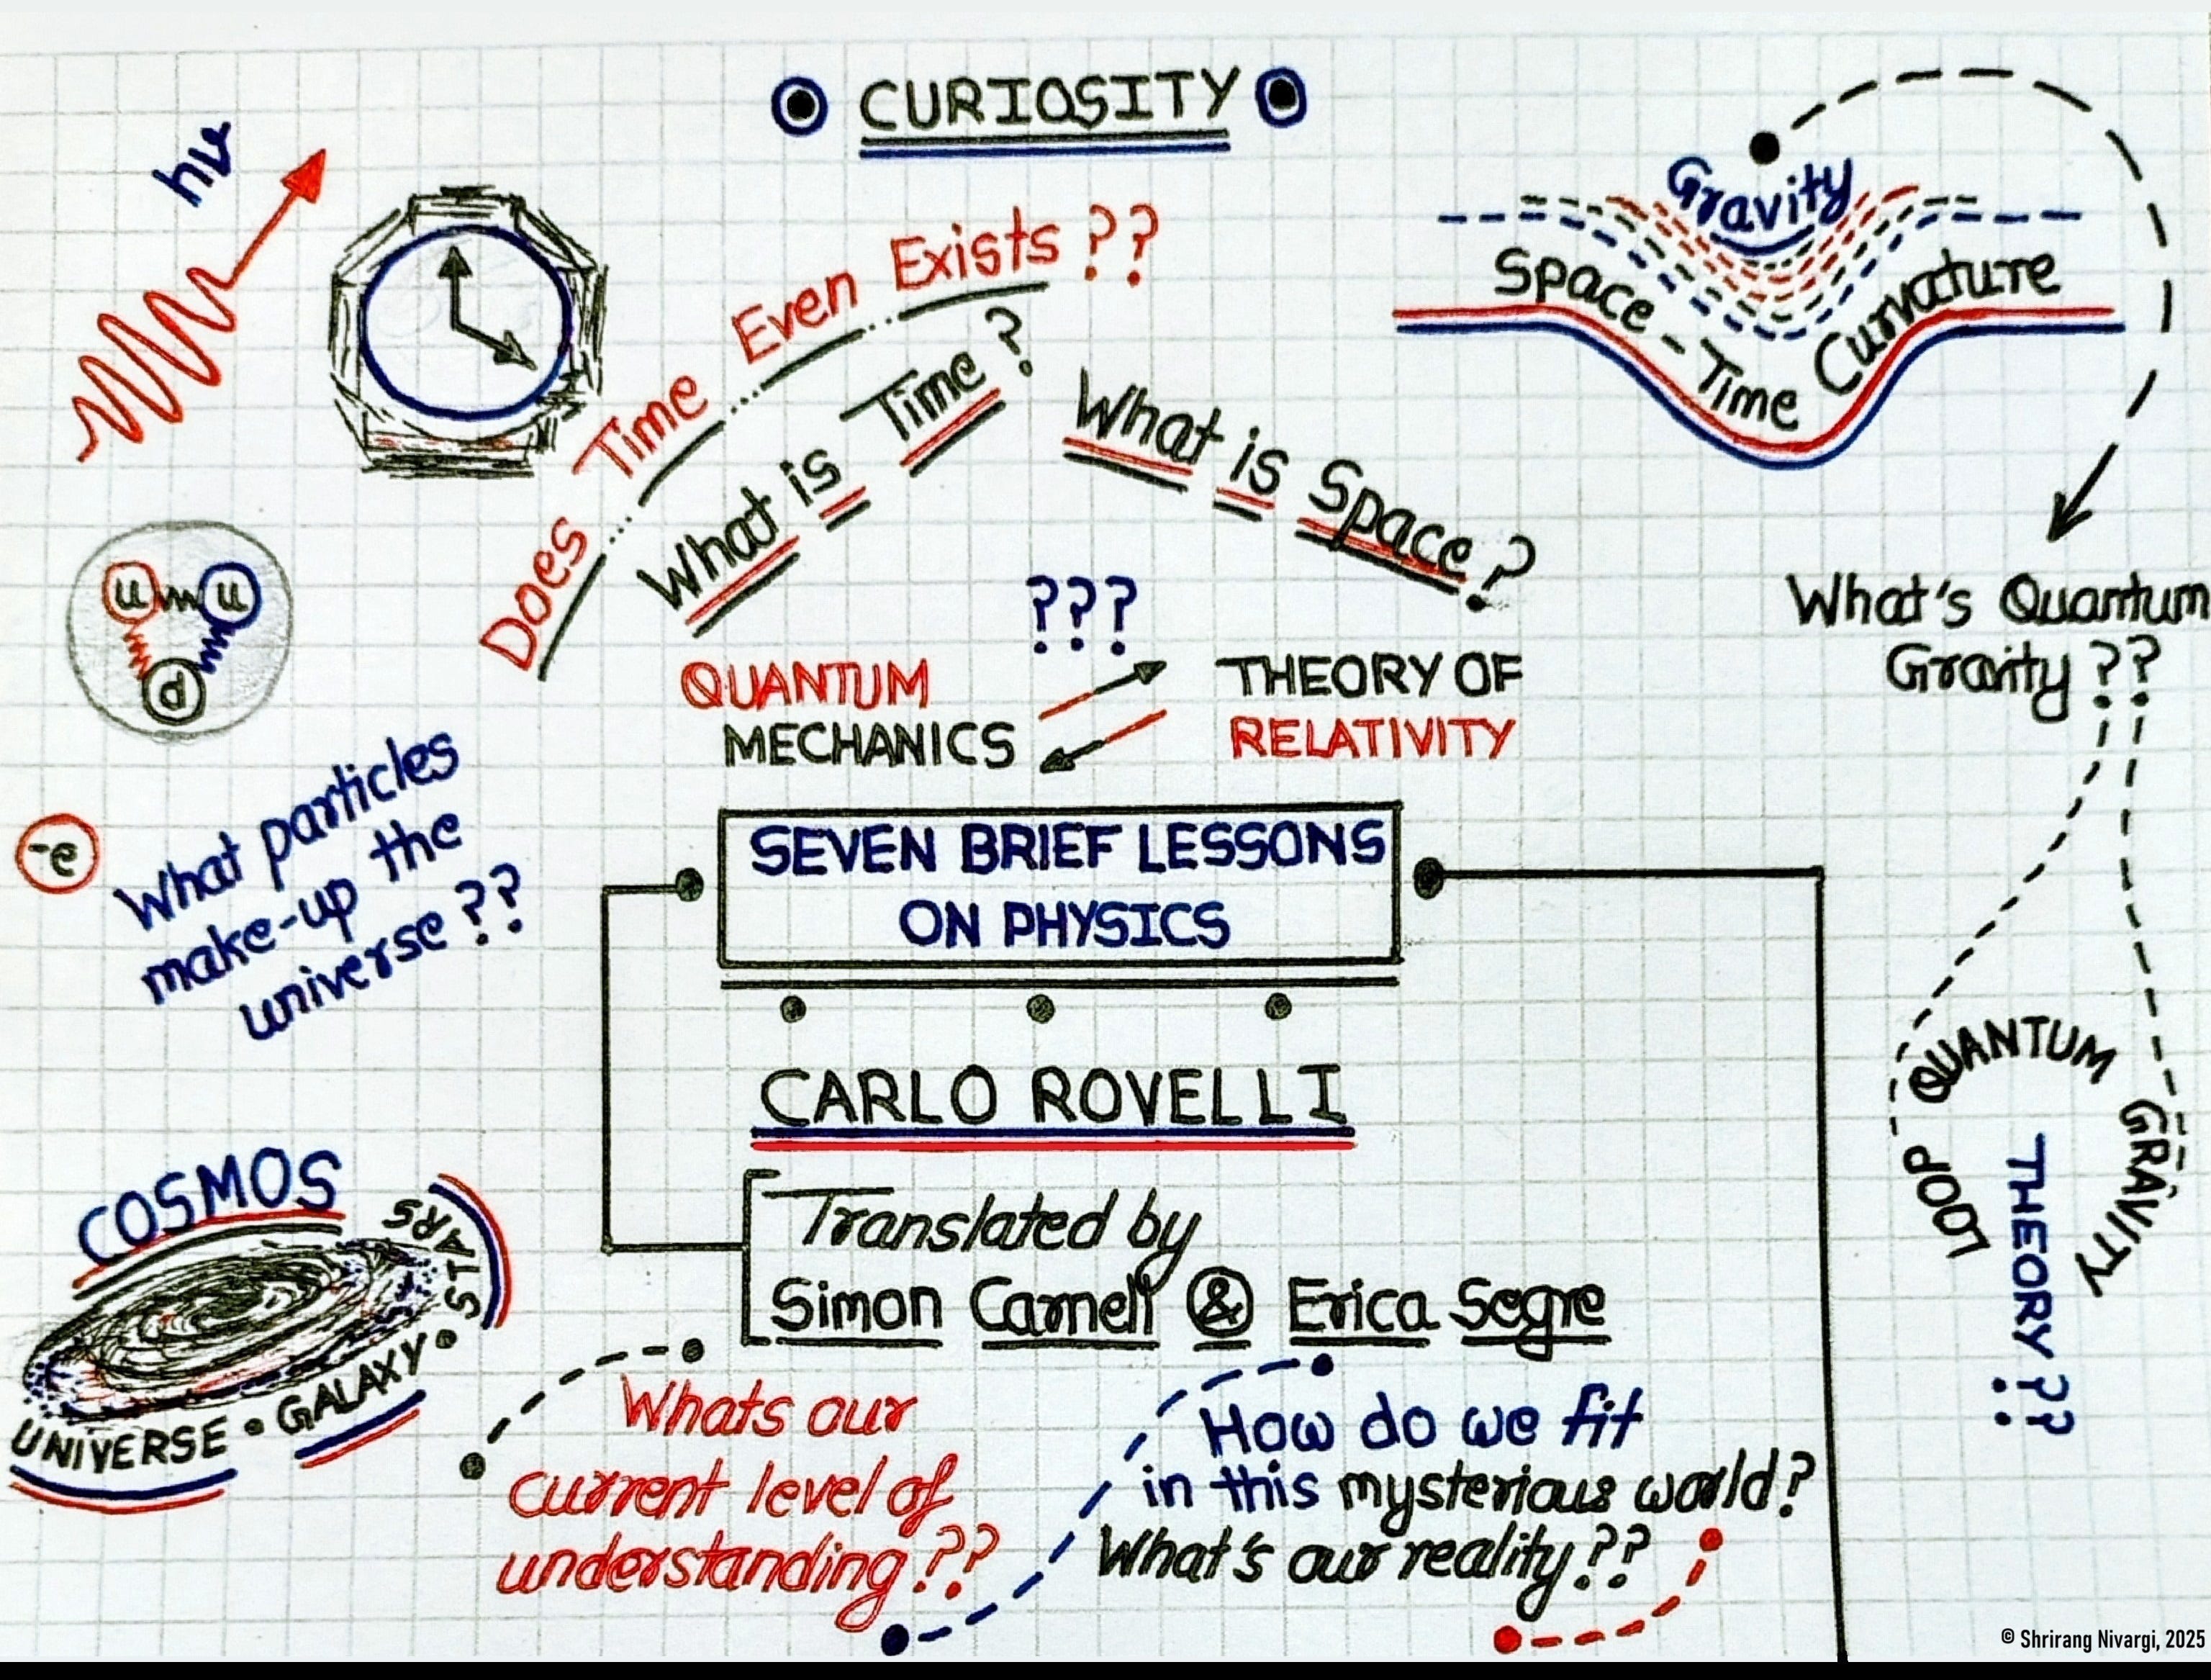 CURIOSITY
hν
Does Time Even Exists ??
What is Time ?
What is Space ?
Gravity
Space - Time Curvature
What's Quantum
Gravity ??
u u
d
???
QUANTUM
MECHANICS
THEORY OF
RELATIVITY
-e
What particles
make-up the
universe ??
SEVEN BRIEF LESSONS
ON PHYSICS
CARLO ROVELLI
Translated by
Simon Carnell & Erica Segre
LOOP QUANTUM GRAVITY
THEORY ??
COSMOS
UNIVERSE • GALAXY • STARS
Whats our
current level of
understanding ??
How do we fit
in this mysterious world?
What's our reality??
© Shrirang Nivargi, 2025